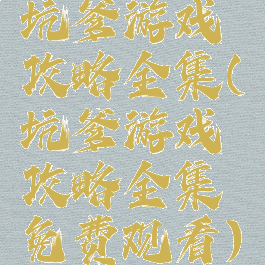 坑爹游戏
攻略全集(
坑爹游戏
攻略全集
免费观看)